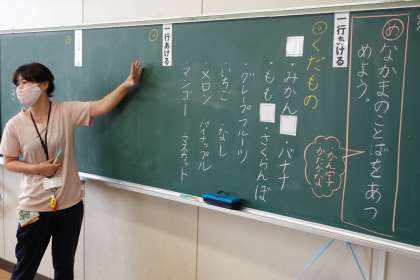 め
なかまのことばをあつ
めよう。
一行あける
かん字
かたかな
くだもの
・みかん ・バナナ
・もも ・さくらんぼ
・グレープフルーツ
・いちご ・なし
・メロン ・パイナップル
・マンゴー ・マスカット
一行あける